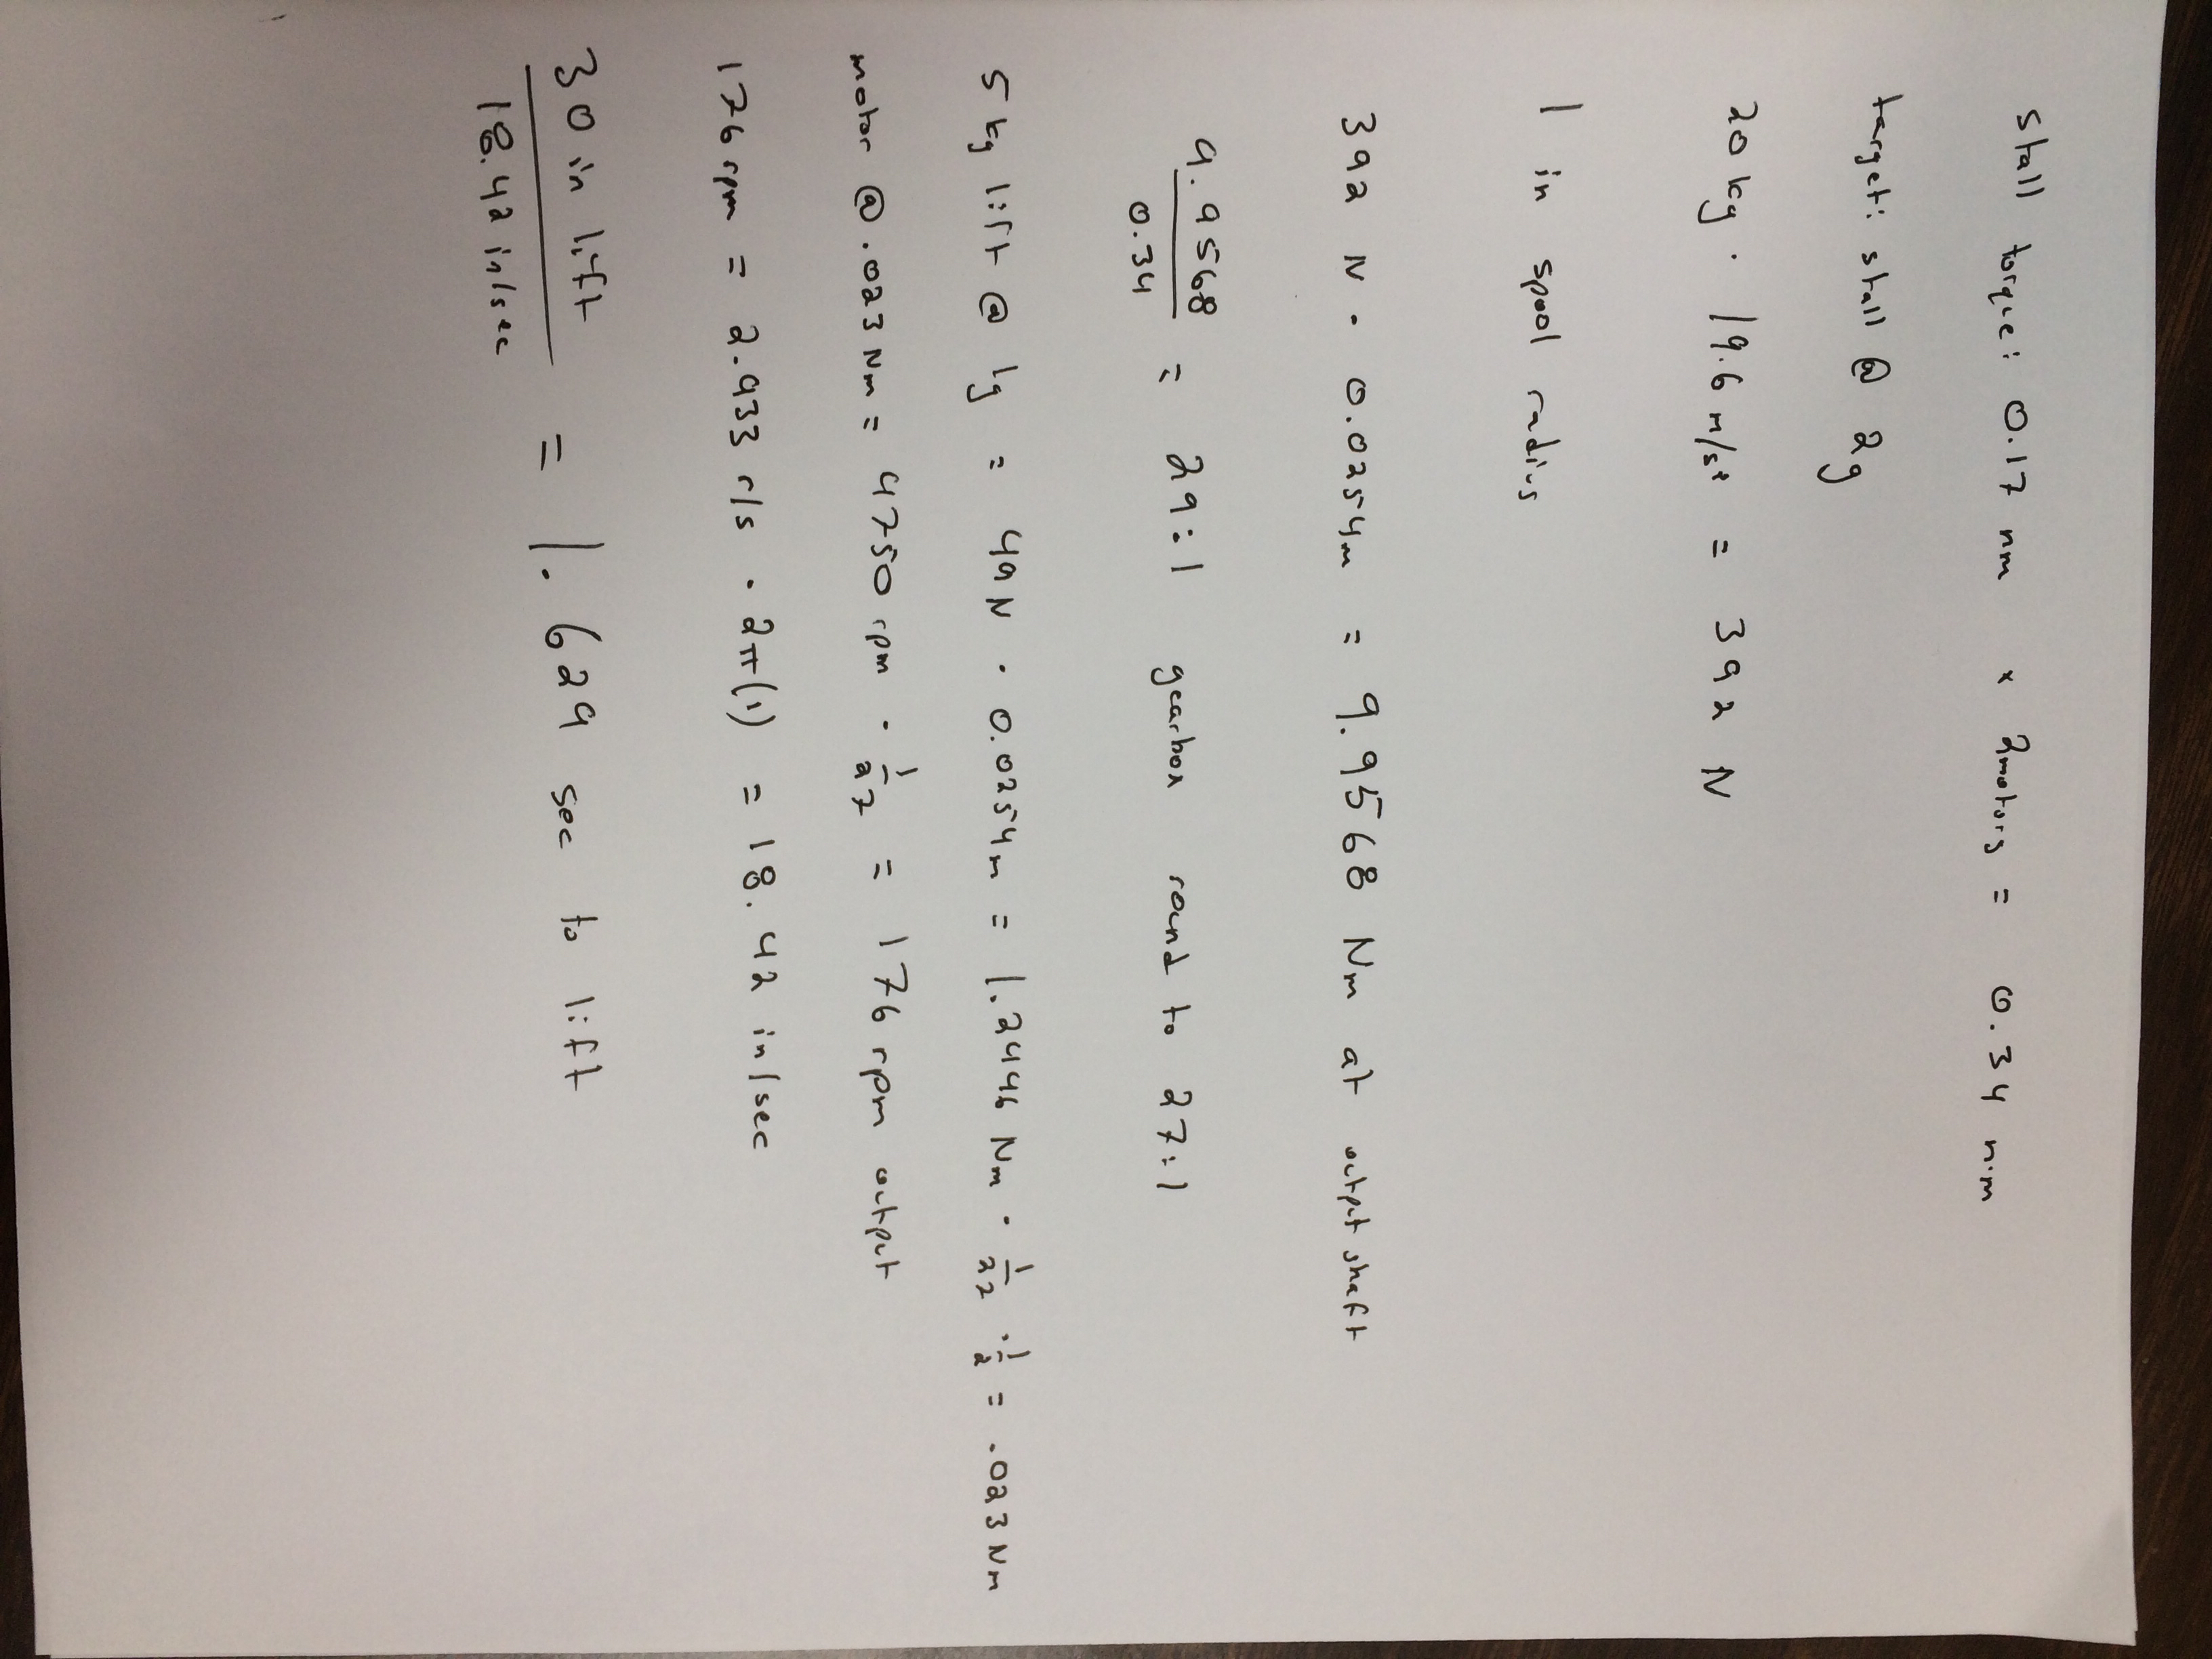 stall torque: 0.17 nm x 2motors = 0.34 n·m
target: stall @ 2g
20 kg · 19.6 m/s² = 392 N
1 in spool radius
392 N · 0.0254m = 9.9568 Nm at output shaft
9.9568
0.34
= 29:1 gearbox round to 27:1
5 kg lift @ 1g = 49N · 0.0254m = 1.2446 Nm · 1/27 · 1/2 = .023 Nm
motor @ .023 Nm = 4750 rpm · 1/27 = 176 rpm output
176 rpm = 2.933 r/s · 2π(1) = 18.42 in/sec
30 in lift
18.42 in/sec
= 1.629 sec to lift